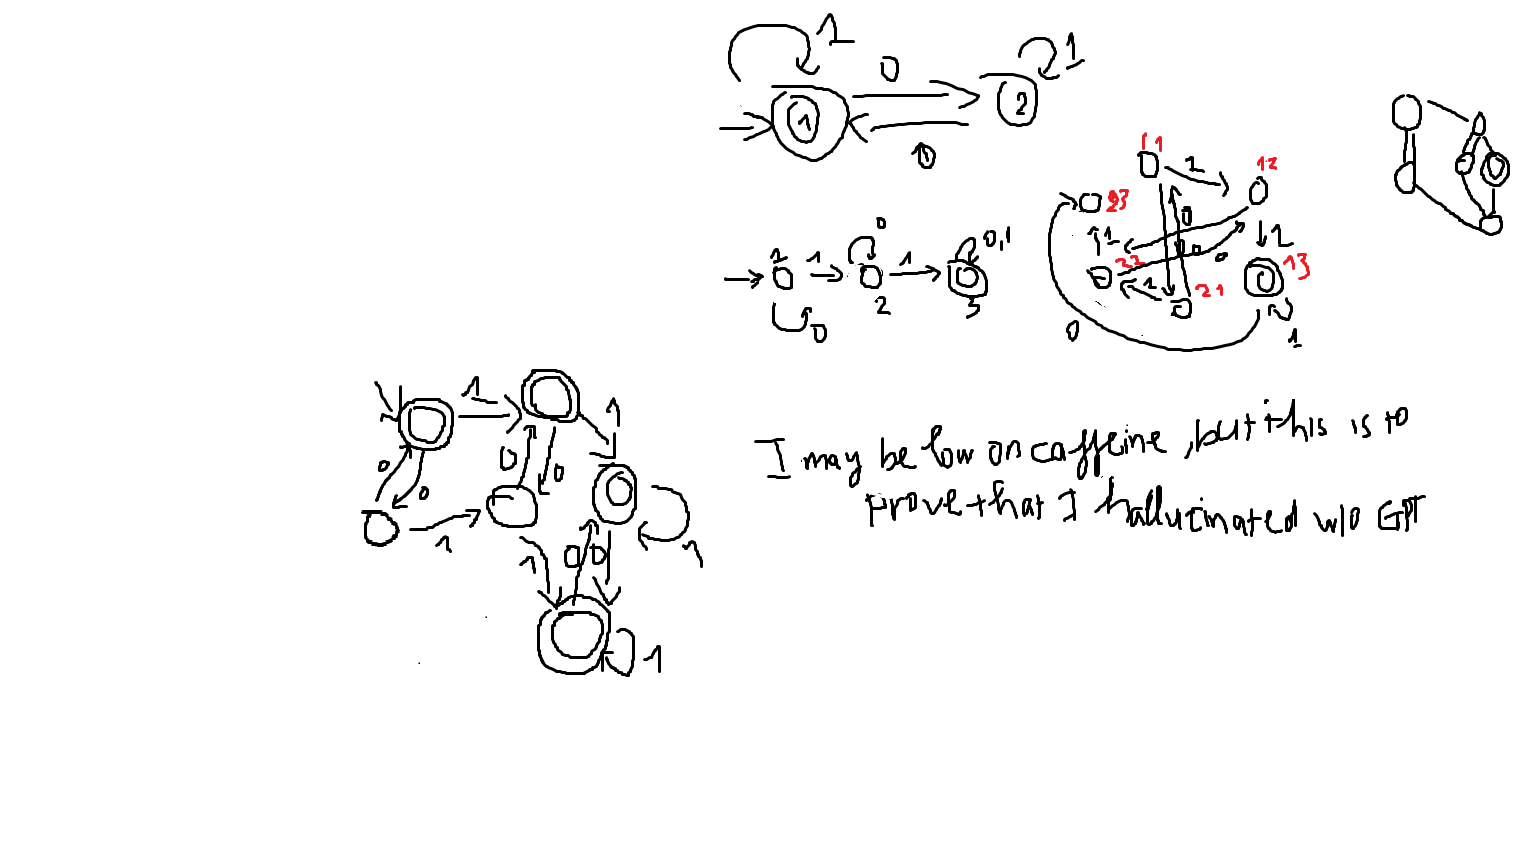 1
1
0
1
2
0
1
1
12
0
0,1
23
0
1
1
1
1
0
0
0
1
22
13
2
3
1
21
0
0
1
1
1
0
0
0
0
1
1
0
0
1
1
I may be low on caffeine, but this is to
prove that I hallucinated w/o GPT